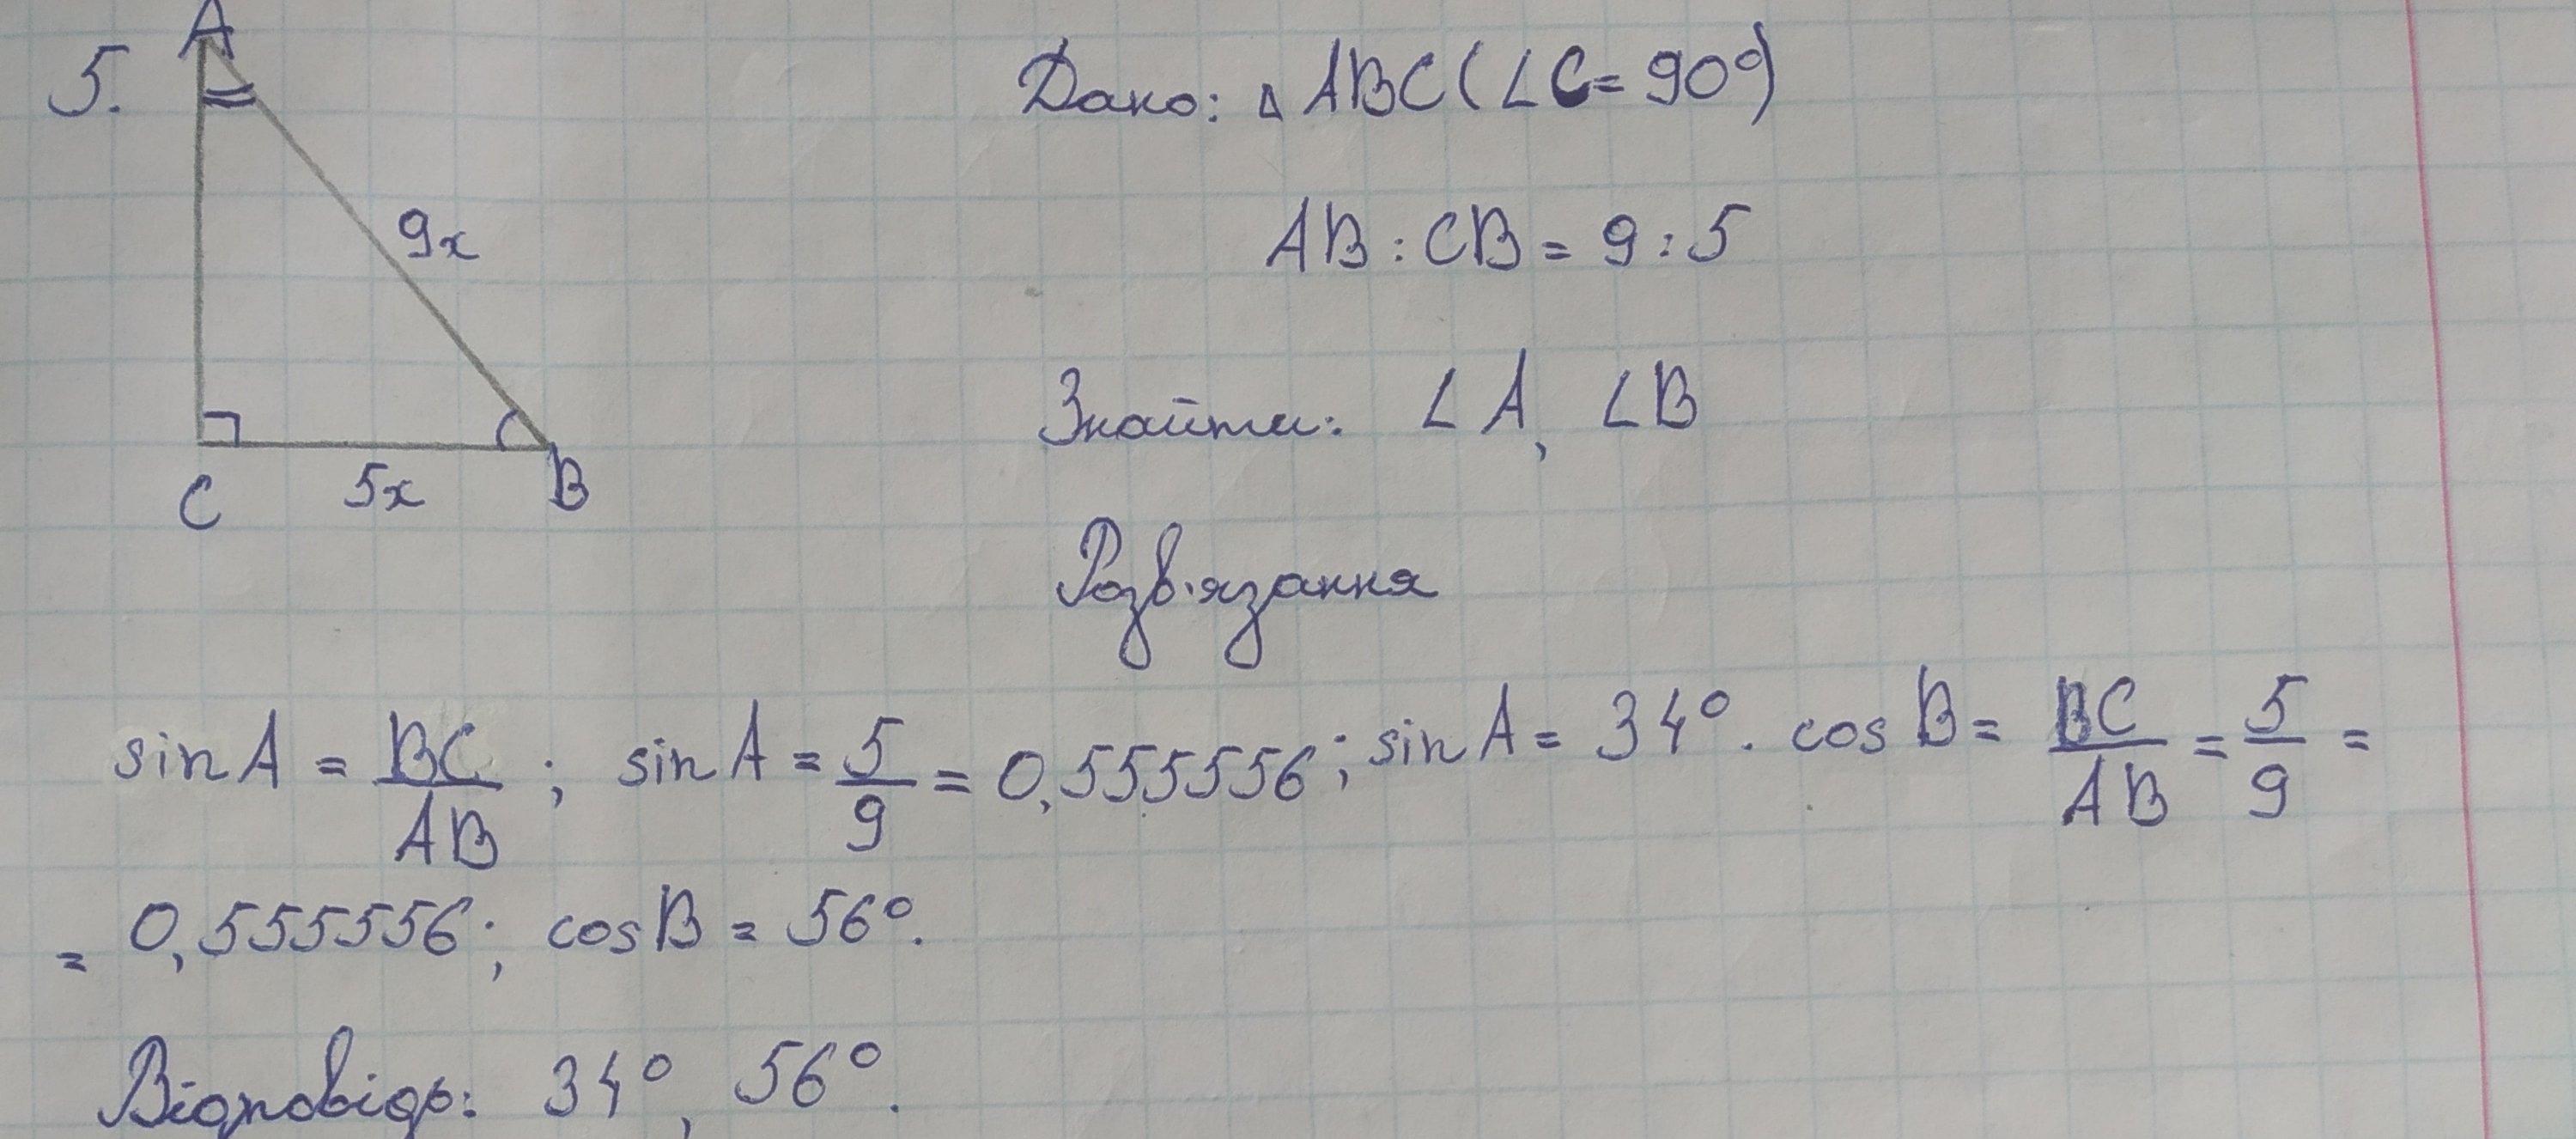 5.
A
9x
C
5x
B
Дано: △ ABC (∠C = 90°)
AB : CB = 9 : 5
Знайти: ∠A, ∠B
Розв'язання
sin A = BC/AB ; sin A = 5/9 = 0,555556; sin A = 34°. cos B = BC/AB = 5/9 =
= 0,555556; cos B = 56°.
Відповідь: 34°, 56°.